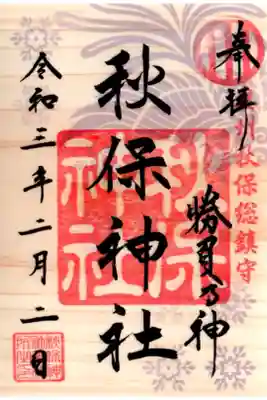 奉拝
秋保総鎮守
勝負の神
秋保神社
秋保神社
令和三年二月二日